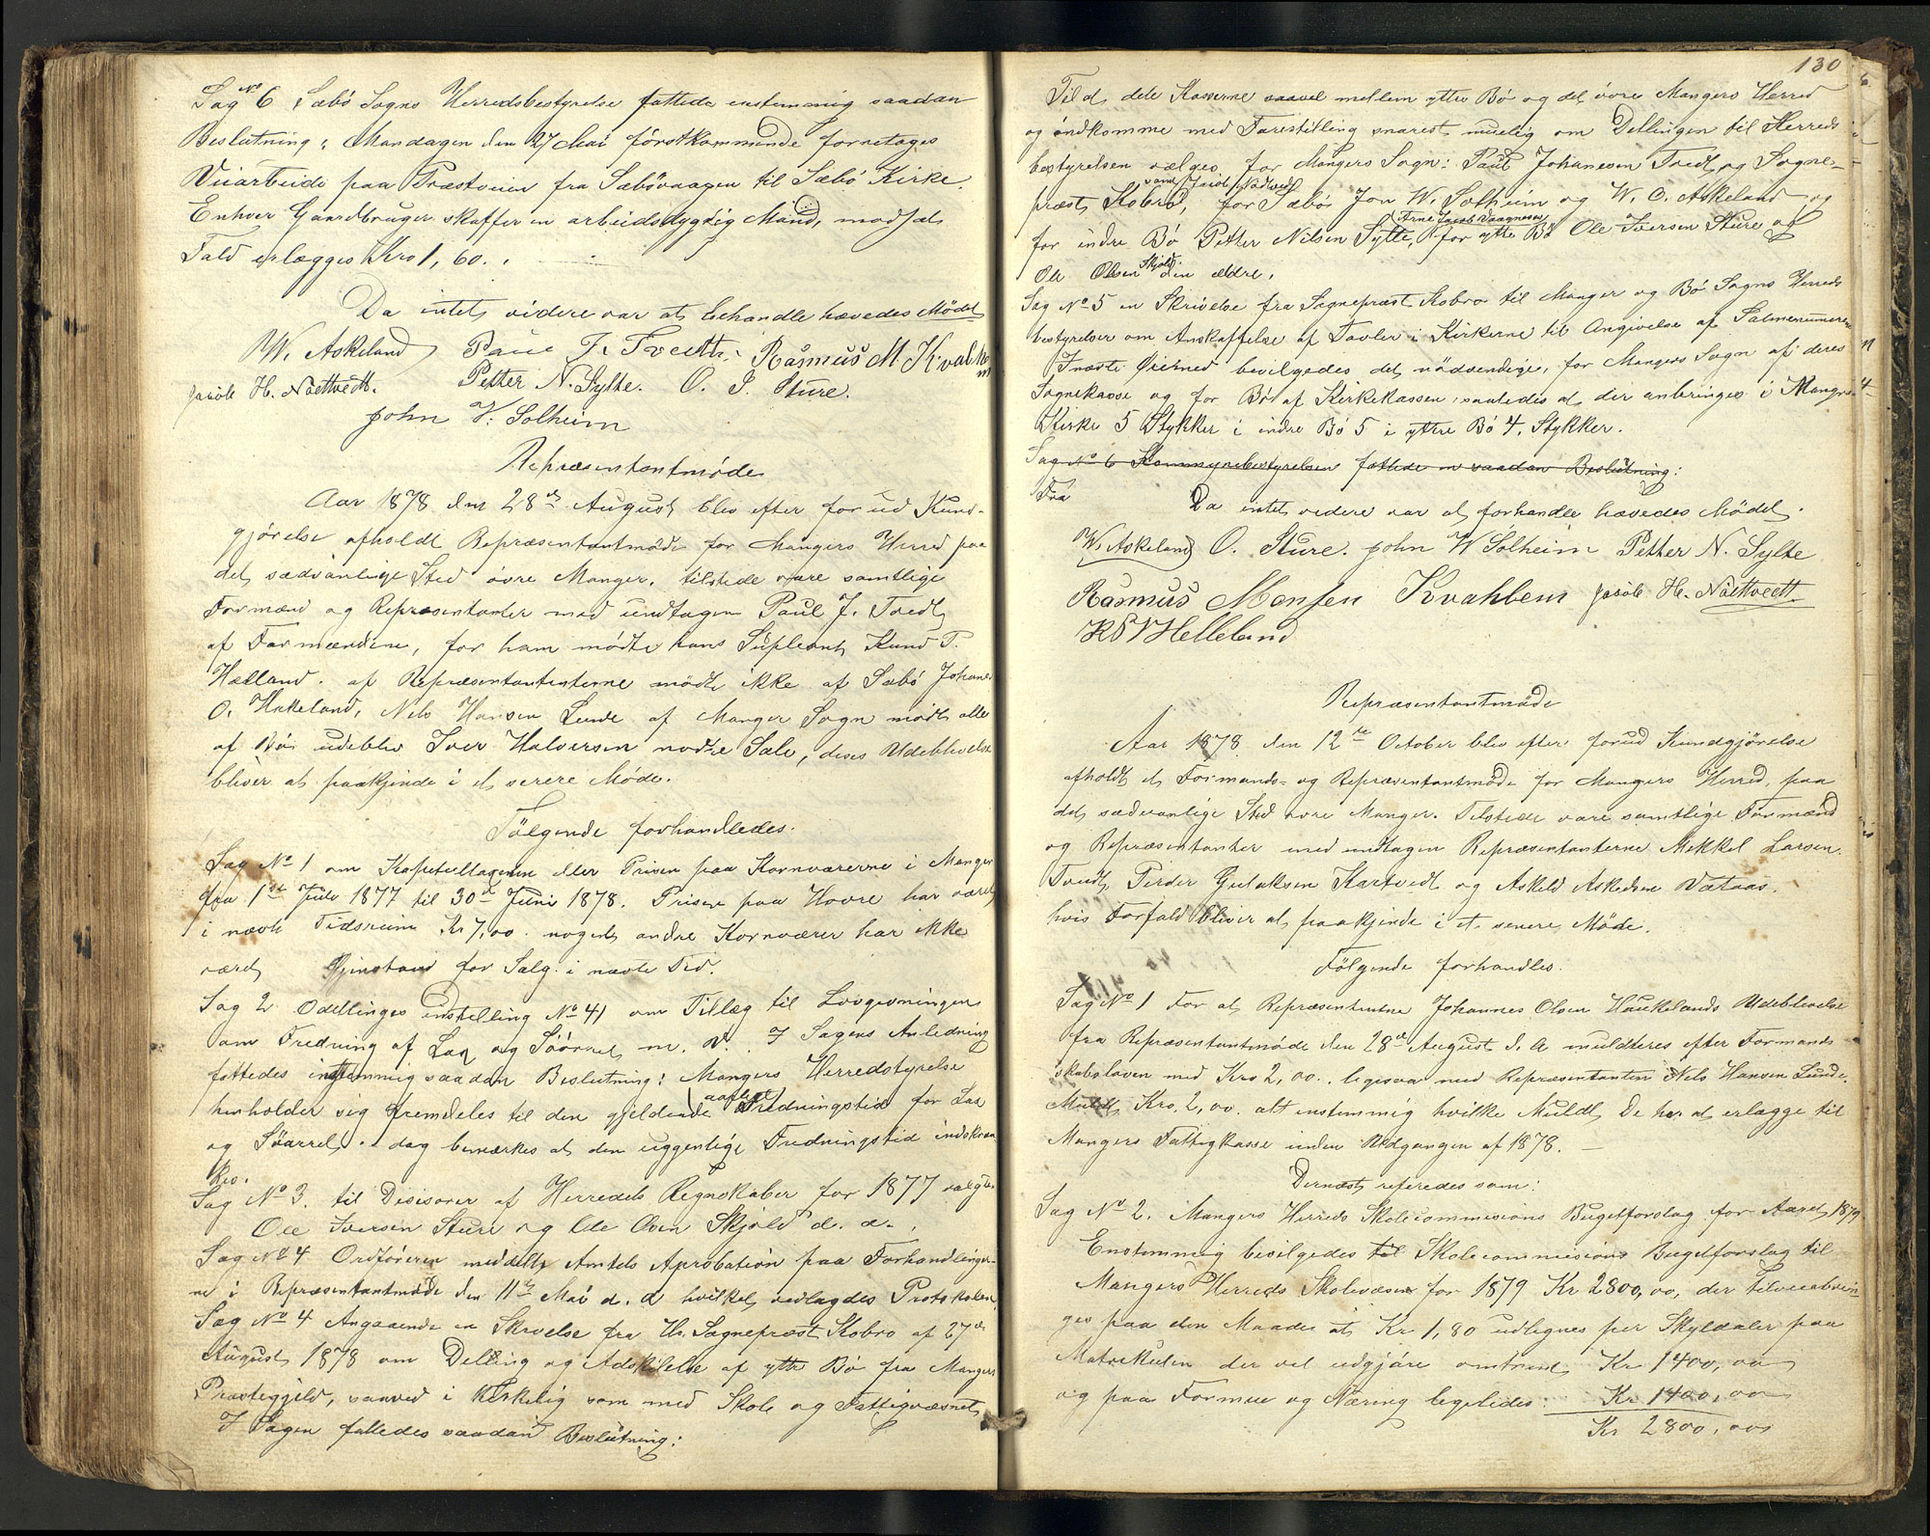 Sag No 6 Sæbö Sogns Herredsbestyrelse fattede enstemmig saadan
Beslutning; Mandagen den 27 Mai förstkommende foretages
Veiarbeide paa Præsteveien fra Sæbövaagen til Sæbö Kirke.
Enhver Gaardbruger skaffer en arbeidsdygtig Mand, modsat
Fald erlægges Kro 1,60.
Da intet videre var at behandle hævedes Mödet
W. Askeland Paul J. Tvedt. Rasmus M. Kvalhem
Jacob H. Nöttvedt. Petter N. Sylte. O. I. Sture.
John W. Solheim
Repræsentantmöde
Aar 1878 den 28de August blev efter forud Kund-
gjörelse afholdt Repræsentantmöde for Mangers Herred paa
det sædvanlige Sted övre Manger. tilstede vare samtlige
Formænd og Repræsentanter med undtagen Paul J. Tvedt
af Formændene, for ham mödte hans Supleant Knud P.
Hælland. af Repræsentanterne mödte ikke af Sæbö Johanes
O. Hakeland, Nels Hansen Lunde af Manger Sogn mödte alle
af Bö udeblev Iver Halversen nodre Sæle, deres Udeblivelse
bliver at paakjende i et senere Möde.
Fölgende forhandledes.
Sag No 1 om Kapitelstagsten eller Prisen paa Kornvarerne i Manger
fra 1ste Juli 1877 til 30de Juni 1878. Prisen paa Havre har været
i nævte Tidsrum Kr 7,00. noget andre Kornvarer har ikke
været Gjenstand for Salg i nævte Tid.
Sag 2 Odeltinges indstelling No 41 om Tillæg til Lovgivningen
om Fredning af Lax og Söörret m. v. I Sagens Anledning
fattedes enstemmig saadan Beslutning: Mangers Herredstyrelse
henholder sig fremdeles til den gjeldende Fredningstid for Lax
og Söarret. dog bemærkes at den uggentlige Fredningstid indskræn-
kes.
Sag No 3. til Desisorer af Herredets Regnskaber for 1877 valgtes
Ole Iversen Sture og Ole Osen Skjold d. æ.
Sag No 4 Ordföreren meddelte Amtets Aprobation paa Forhandlinger-
ne i Repræsentantmöde den 11te Mai d. a hvilket vedlagdes Protokolen.
Sag No 4 Angaaende en Skrivelse fra Hr. Sognepræst Kobro af 27de
August 1878 om Deling og Adskilelse af yttre Bö fra Mangers
Præstegjeld, saavel i Kirkelig som med Skole og Fattigvæsnet
I Sagen fattedes saadan Beslutning:
130
Til at dele Kasserne saavel mellem yttre Bö og det övre Mangers Herred
og indkomme med Forestilling snarest muelig om Delingen til Herreds
bestyrelsen vælges for Mangers Sogn: Paul Johanesen Tvedt og Sogne-
præst Kobro, samt Jacob Nötvedt for Sæbö Jon W. Solheim og W. O. Askeland og
for indre Bö Petter Nilsen Sylte, Arne Jacob Vaagnesen for yttre Bö Ole Iversen Sture og
Ole Olsen Skjold den ældre.
Sag No 5 en Skrivelse fra Sognepræst Kobro til Manger og Bö Sogns Herreds
bestyrelser om Anskaffelse af Tavler i Kirkerne til Angivelse af Salmenumerene
I næste Öiemed bevilgedes det nödvendige, for Mangers Sogn af deres
Sognekasse og for Bö af Kirkekassen, saaledes at der anbringes i Mangers
Kirke 5 Stykker i indre Bö 5 i yttre Bö 4 Stykker.
Sag No 6 Kommunebestyrelsen fattede en saadan Beslutning:
Fra
Da intet videre var at forhandle hævedes Mödet.
W. Askeland O. Sture. John W Solheim Petter N. Sylte
Rasmus Monsen Kvalhem Jacob H. Nöttvedt.
K P Helleland
Repræsentantmöde
Aar 1878 den 12te October blev efter forud Kundgjörelse
afholdt et Formands- og Repræsentantmöde for Mangers Herred, paa
det sædvanlige Sted övre Manger. Tilstede vare samtlige Formænd
og Repræsentanter med undtagen Repræsentanterne Mekkel Larsen
Tvedt, Peder Gulaksen Kartvedt og Askeld Askedsen Vætaas.
hvis Forfald bliver at paakjende i et senere Möde.
Fölgende forhandles.
Sag No 1 For at Repræsentantne Johannes Olsen Haukelands Udeblivelse
fra Repræsentantmöde den 28de August d. A muldteres efter Formand-
skabsloven med Kro 2,00. ligesaa med Repræsentanten Nels Hansen Lunde.
Muldt Kro. 2,00. alt enstemmig hvilke Muldt De har at erlægge til
Mangers Fattigkasse inden Udgangen af 1878. —
Dernæst refereedes som:
Sag No 2. Mangers Herreds Skolecommisions Bugetforslag for Aaret 1879
Enstemmig bevilgedes til Skolecommisions Bugetforslag til
Mangers Herreds Skolevæsen for 1879 Kr 2800,00, der tilveiebrin-
ges paa den Maade at Kr 1,80 udlignes per Skyldaler paa
Matrikulen der vil udgjöre omtrent Kr 1400,00
og paa Formue og Næring legeledes. Kr 1400,00
Kr 2800,00